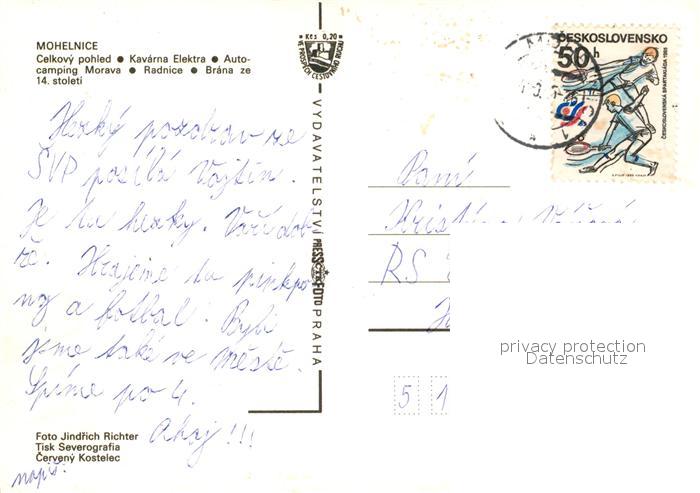 MOHELNICE
Celkový pohled ● Kavárna Elektra ● Auto-
camping Morava ● Radnice ● Brána ze
14. století
Hezký pozdrav ze
ŠVP posílá Vojtín.
Je tu hezky. Vaří dob
ře. Hrajeme tu pinkpo
ng a fotbal. Byli
jsme také ve městě.
Spíme po 4.
Ahoj!!!
Foto Jindřich Richter
Tisk Severografia
Červený Kostelec
napiš!
Kčs 0,20
VE PROSPĚCH CESTOVNÍHO RUCHU
VYDAVATELSTVÍ PRESSFOTO PRAHA
ČESKOSLOVENSKO
50 h
ČESKOSLOVENSKÁ SPARTAKIÁDA 1985
Paní
RS
5 1
privacy protection
Datenschutz